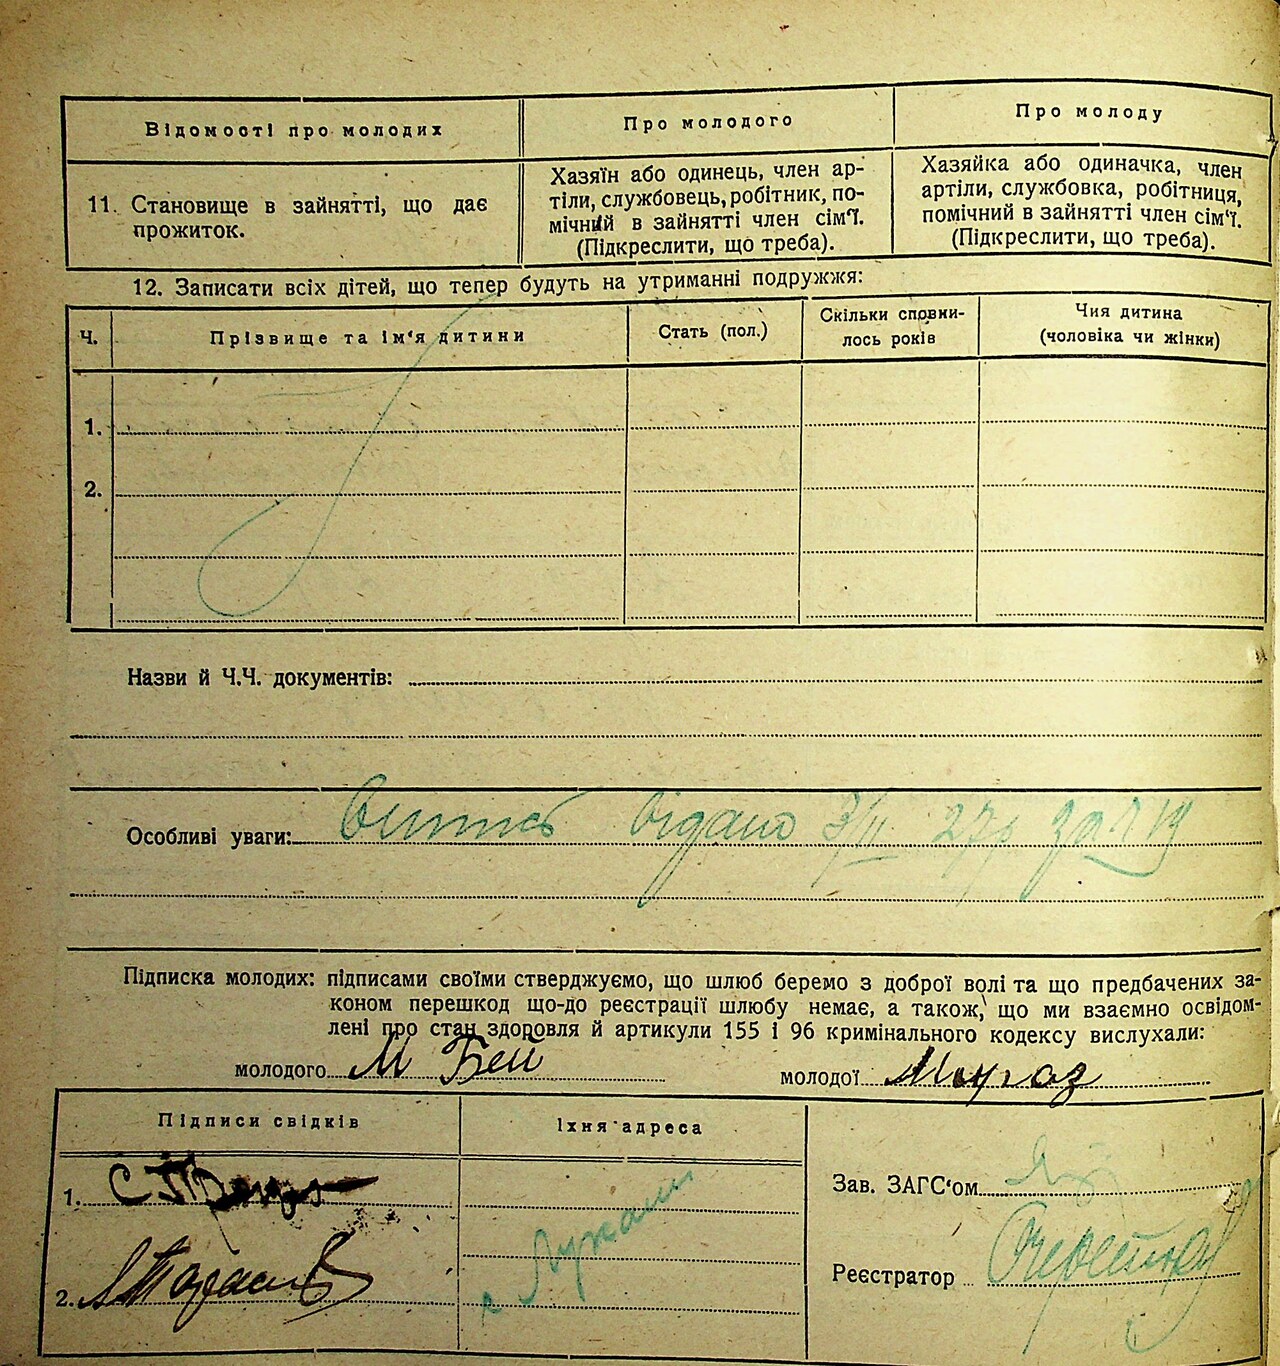 Відомості про молодих
Про молодого
Про молоду
11. Становище в зайнятті, що дає
прожиток.
Хазяїн або одинець, член ар-
тіли, службовець, робітник, по-
мічний в зайнятті член сім'ї.
(Підкреслити, що треба).
Хазяйка або одиначка, член
артіли, службовка, робітниця,
помічний в зайнятті член сім'ї.
(Підкреслити, що треба).
12. Записати всіх дітей, що тепер будуть на утриманні подружжя:
Ч.
Прізвище та ім'я дитини
Стать (пол.)
Скільки сповни-
лось років
Чия дитина
(чоловіка чи жінки)
1.
2.
Назви й Ч.Ч. документів:
Особливі уваги: видано 3/II 27р
Підписка молодих: підписами своїми стверджуємо, що шлюб беремо з доброї волі та що предбачених за-
коном перешкод що-до реєстрації шлюбу немає, а також, що ми взаємно освідом-
лені про стан здоровля й артикули 155 і 96 кримінального кодексу вислухали:
молодого М Бей
молодої
Підписи свідків
Їхня адреса
1.
2.
Зав. ЗАГС'ом
Реєстратор